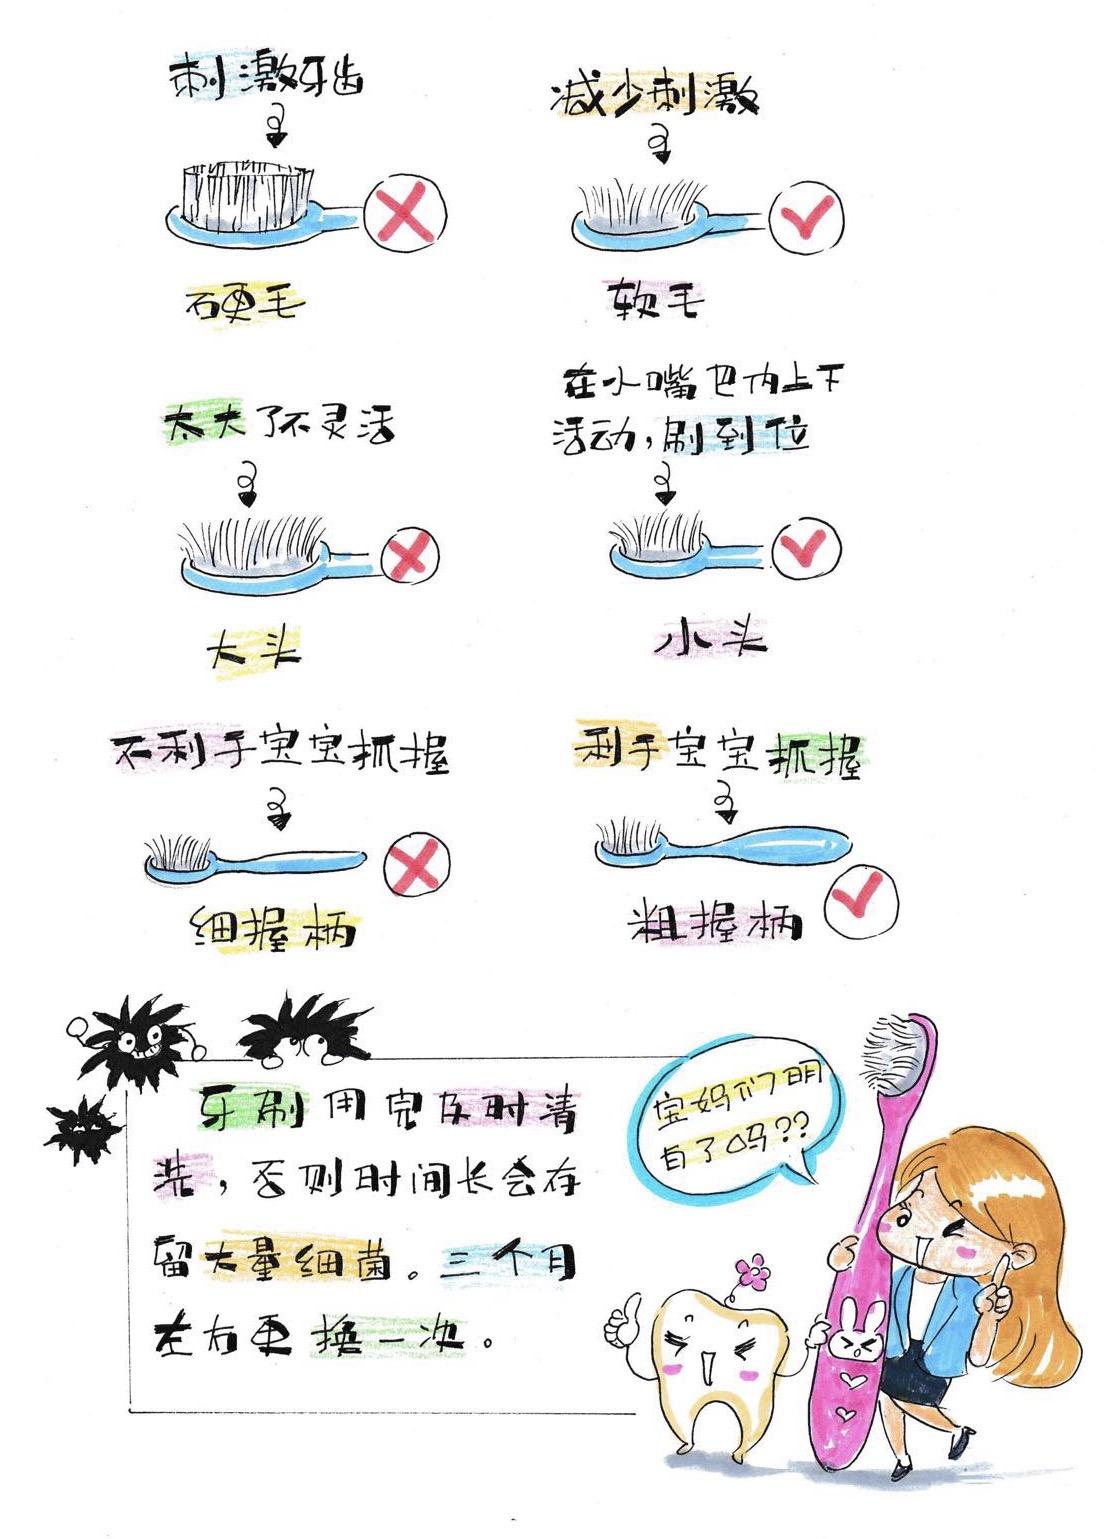 刺激牙齿
减少刺激
硬毛
软毛
太大了不灵活
在小嘴巴内上下
活动，刷到位
大头
小头
不利于宝宝抓握
利于宝宝抓握
细握柄
粗握柄
牙刷用完及时清
洗，否则时间长会存
留大量细菌。三个月
左右更换一次。
宝妈们明
白了吗??